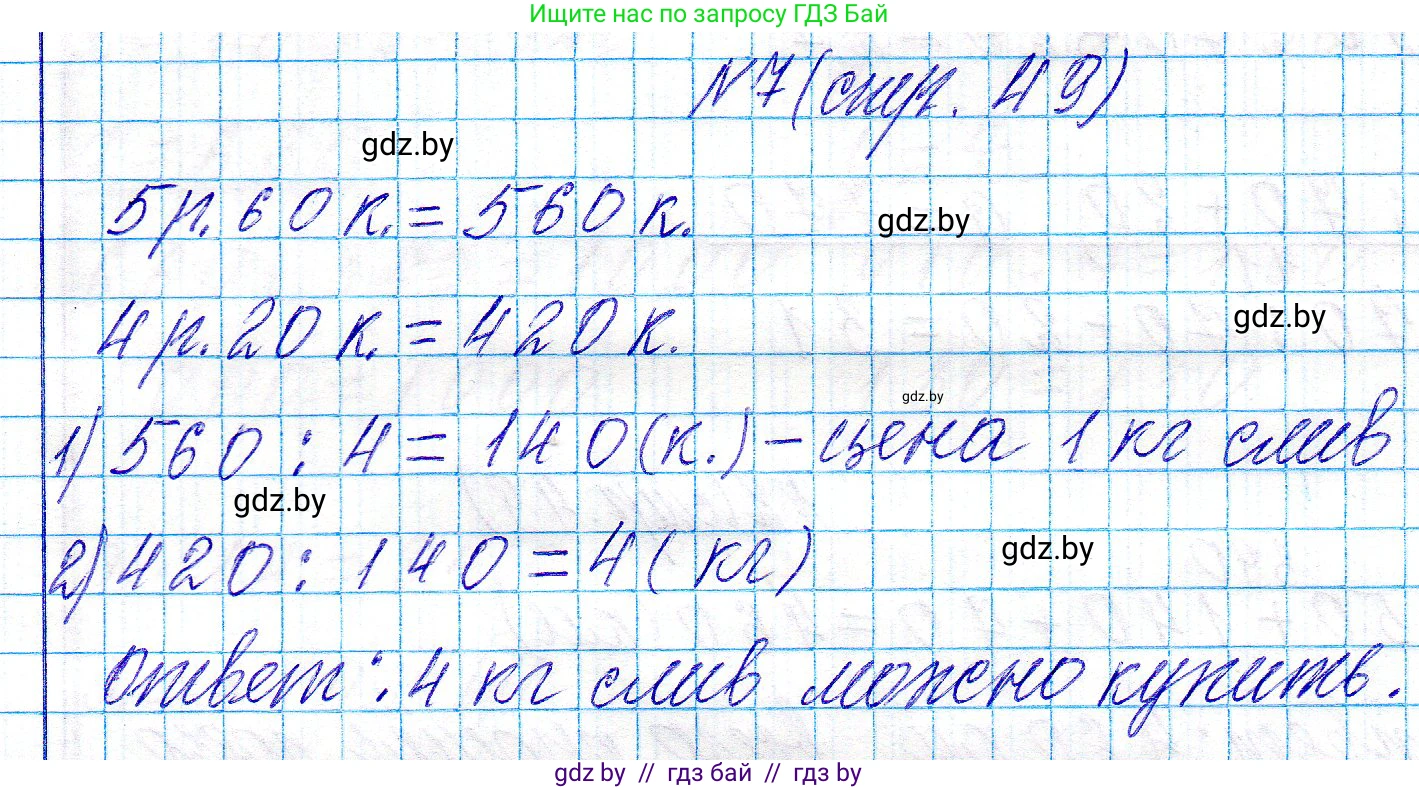 Ищите нас по запросу ГДЗ Бай
№7 (стр. 49)
gdz.by
5 р. 60 к. = 560 к.
gdz.by
4 р. 20 к. = 420 к.
gdz.by
gdz.by
1) 560 : 4 = 140 (к.) – цена 1 кг слив
gdz.by
2) 420 : 140 = 4 (кг)
gdz.by
ответ: 4 кг слив можно купить.
gdz by // гдз бай // гдз by